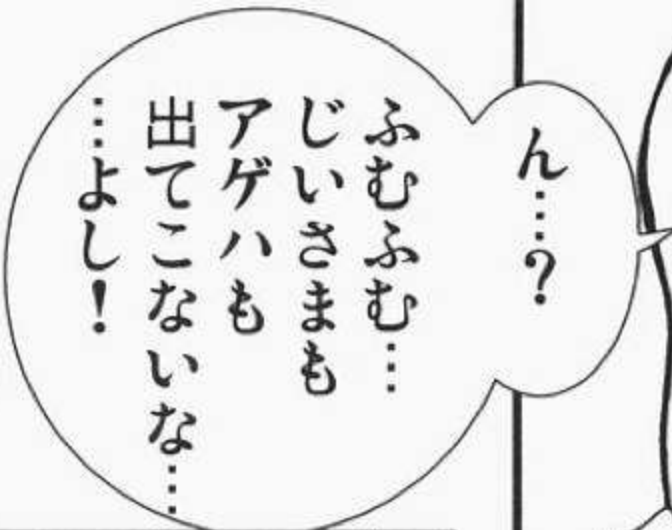 ん…?
ふむふむ…
じいさまも
アゲハも
出てこないな…
…よし!